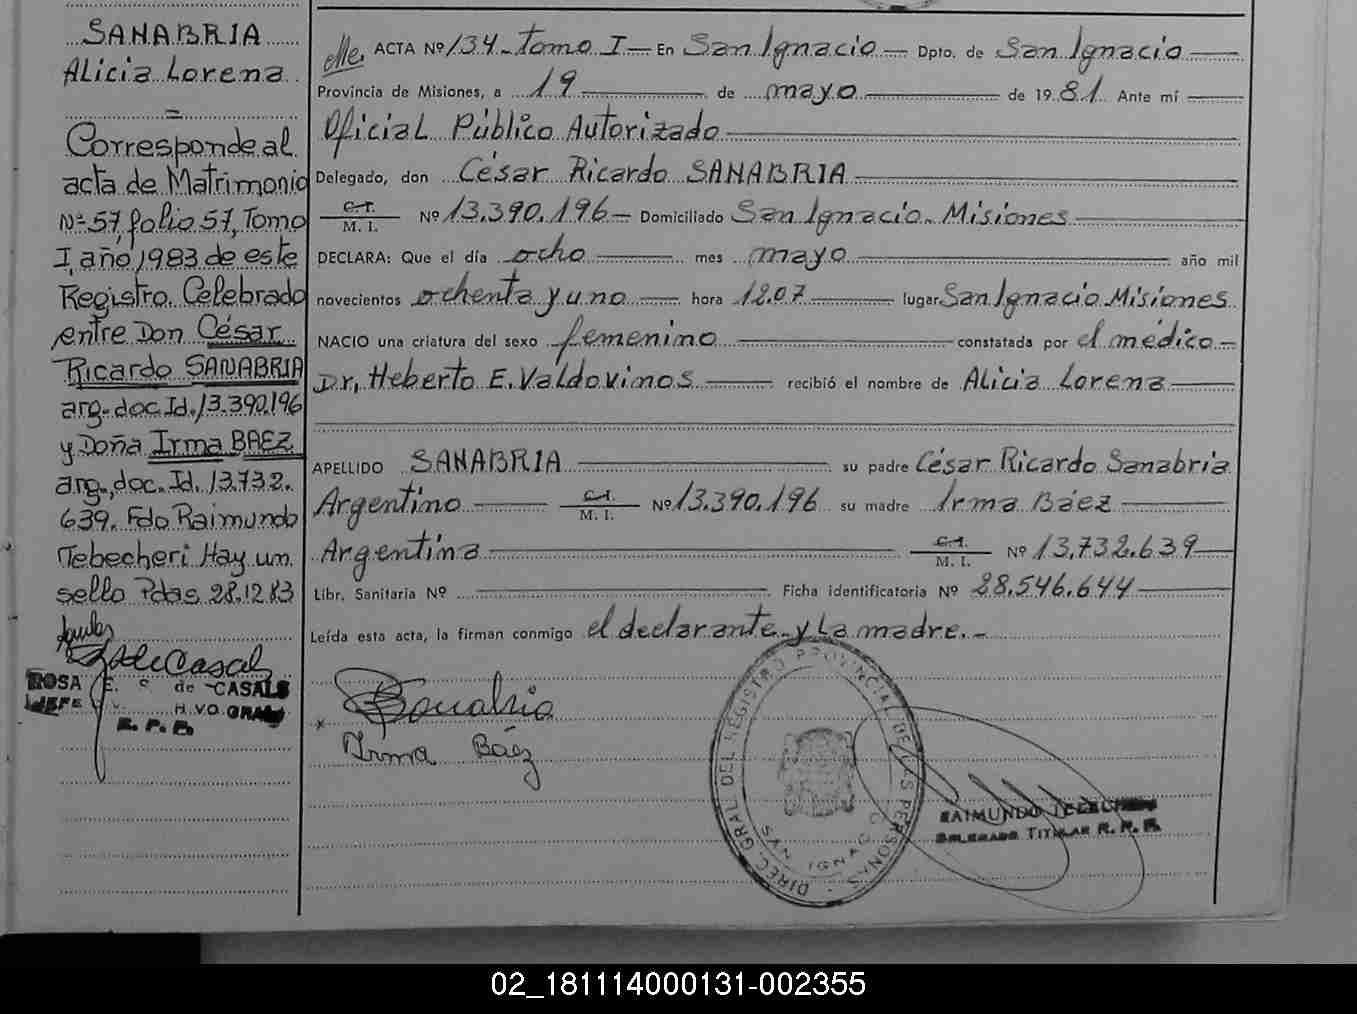 SANABRIA
Alicia Lorena
=
Corresponde al
acta de Matrimonio
Nº 57, folio 57, Tomo
I, año 1983 de este
Registro. Celebrado
entre Don César
Ricardo SANABRIA
arg. doc Id. 13.390.196
y Doña Irma BAEZ
arg., doc. Id. 13.732.
639. Fdo Raimundo
Tebecheri Hay un
sello Pdas 28.12.83
ROSA E. S. de CASALS
JEFE
R. P. P.
ACTA Nº 134- Tomo I- En San Ignacio Dpto. de San Ignacio
Provincia de Misiones, a 19 de mayo de 1981 Ante mí
Oficial Público Autorizado
Delegado, don César Ricardo SANABRIA
C.I.
M. I. Nº 13.390.196- Domiciliado San Ignacio. Misiones
DECLARA: Que el día ocho mes mayo año mil
novecientos ochenta y uno hora 12.07 lugar San Ignacio Misiones
NACIO una criatura del sexo femenino constatada por el médico-
Dr. Heberto E. Valdovinos recibió el nombre de Alicia Lorena
APELLIDO SANABRIA su padre César Ricardo Sanabria
Argentino C.I. M. I. Nº 13.390.196 su madre Irma Báez
Argentina C.I. M. I. Nº 13.732.639
Libr. Sanitaria Nº Ficha identificatoria Nº 28.546.644
Leída esta acta, la firman conmigo el declarante y La madre.-
x
Irma Báez
DIREC. GRAL DEL REGISTRO PROVINCIAL DE LAS PERSONAS
SAN IGNACIO
RAIMUNDO TEBECHERI
DELEGADO TITULAR R. P. P.
02_181114000131-002355